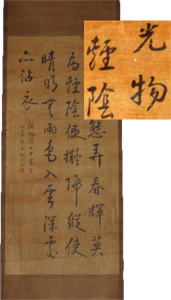 光物
輕陰
態弄春輝莫
為輕陰便擬歸縱使
晴明無雨色入雲深處
亦沾衣